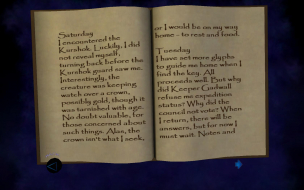 Saturday
I encountered the
Kurshok. Luckily, I did
not reveal myself,
turning back before the
Kurshok guard saw me.
Interestingly, the
creature was keeping
watch over a crown,
possibly gold, though it
was tarnished with age.
No doubt valuable, for
those concerned about
such things. Alas, the
crown isn't what I seek,
or I would be on my way
home - to rest and food.
Tuesday
I have set more glyphs
to guide me home when I
find the key. All
proceeds well. But why
did Keeper Gudwall
refuse me expedition
status? Why did the
council not vote? When
I return, there will be
answers, but for now I
must wait. Notes and